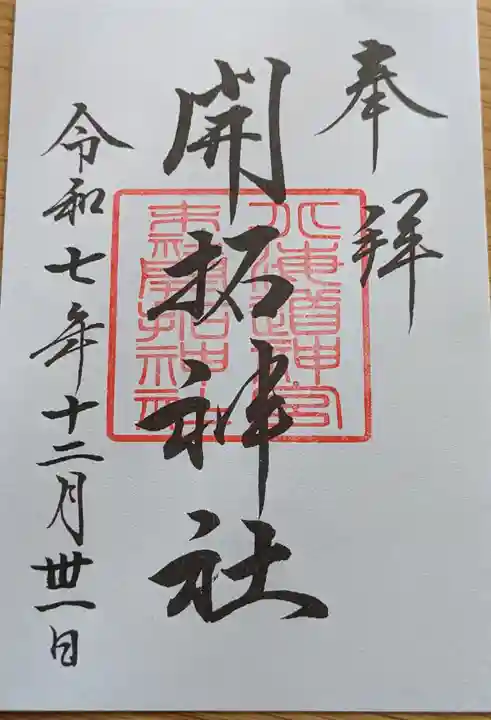 奉拝
開拓神社
北海道神宮
末社開拓神社
令和七年十二月丗一日